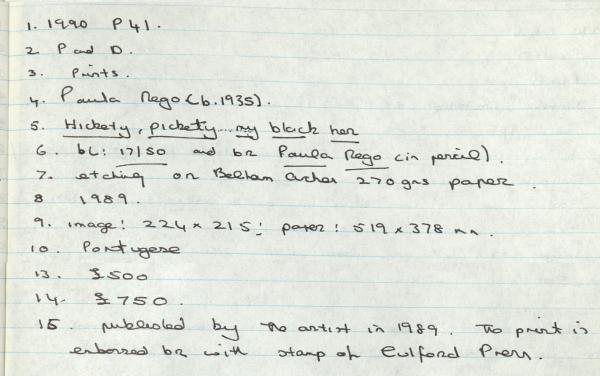 1. 1990 P 41.
2 P and D.
3. Prints.
4. Paula Rego (b.1935).
5. Hickety, pickety... my black hen
6. bl: 17/50 and br Paula Rego (in pencil).
7. etching on Belham Arches 270 gms paper.
8 1989.
9. image: 224 x 215: paper: 519 x 378 mm.
10. Portugese
13. £500
14. £750.
15. published by the artist in 1989. The print is
embossed br with stamp of Culford Press.